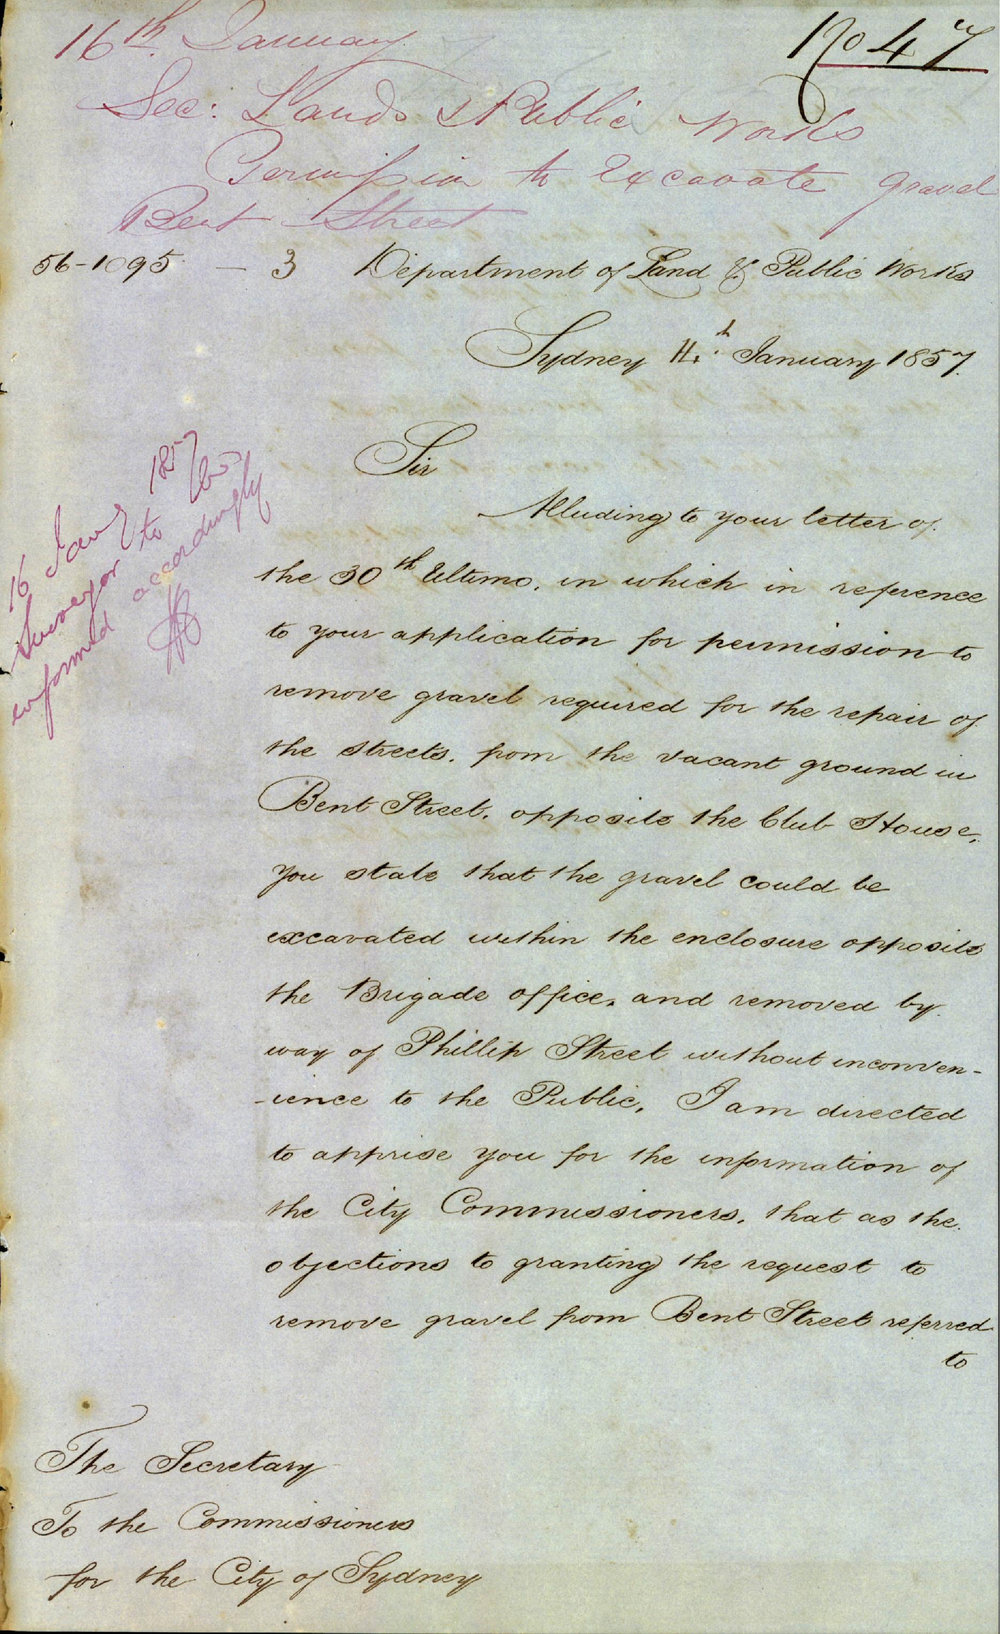 16th January
No 47
Sec: Lands & Public Works
Permission to Excavate gravel
Bent Street
56-1095 - 3 Department of Land & Public Works
Sydney 14th January 1857.
Sir
Alluding to your letter of
the 30th Ultimo, in which in reference
to your application for permission to
remove gravel required for the repair of
the streets, from the vacant ground in
Bent Street, opposite the Club House,
you state that the gravel could be
excavated within the enclosure opposite
the Brigade office, and removed by
way of Phillip Street without inconven-
-ience to the Public, I am directed
to apprise you for the information of
the City Commissioners, that as the
objections to granting the request to
remove gravel from Bent Street referred
to
16 Jany 1857
Surveyor to be
informed accordingly
The Secretary
To the Commissioners
for the City of Sydney